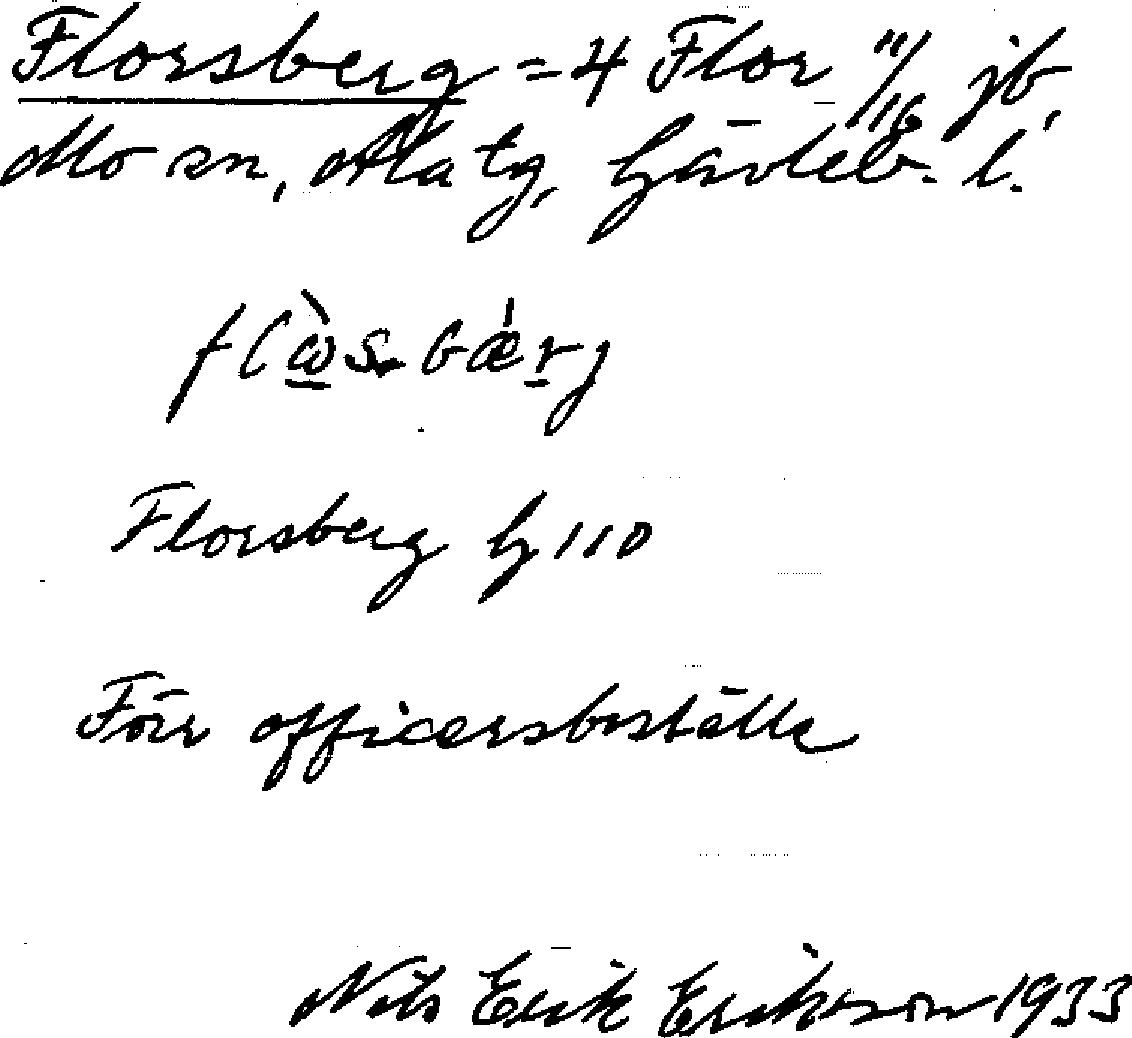 Florsberg = 4 Flor 11/16 jb,
Mo sn, Ala tg, Gävleb. l.
flὼs.bæ̀rj
Florsberg G 110
Förr officersboställe
Nils Erik Eriksson 1933